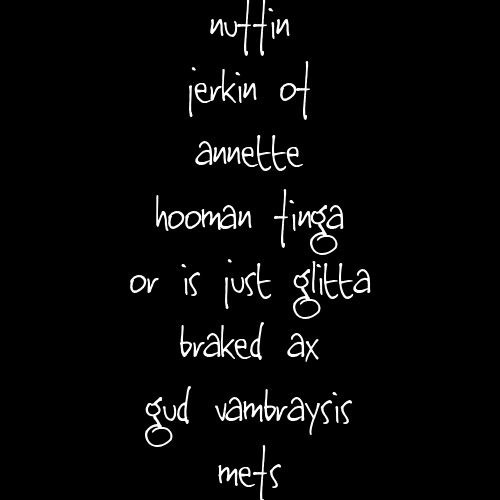 nuffin
jerkin of
annette
hooman finga
or is just glitta
braked ax
gud vambraysis
mefs